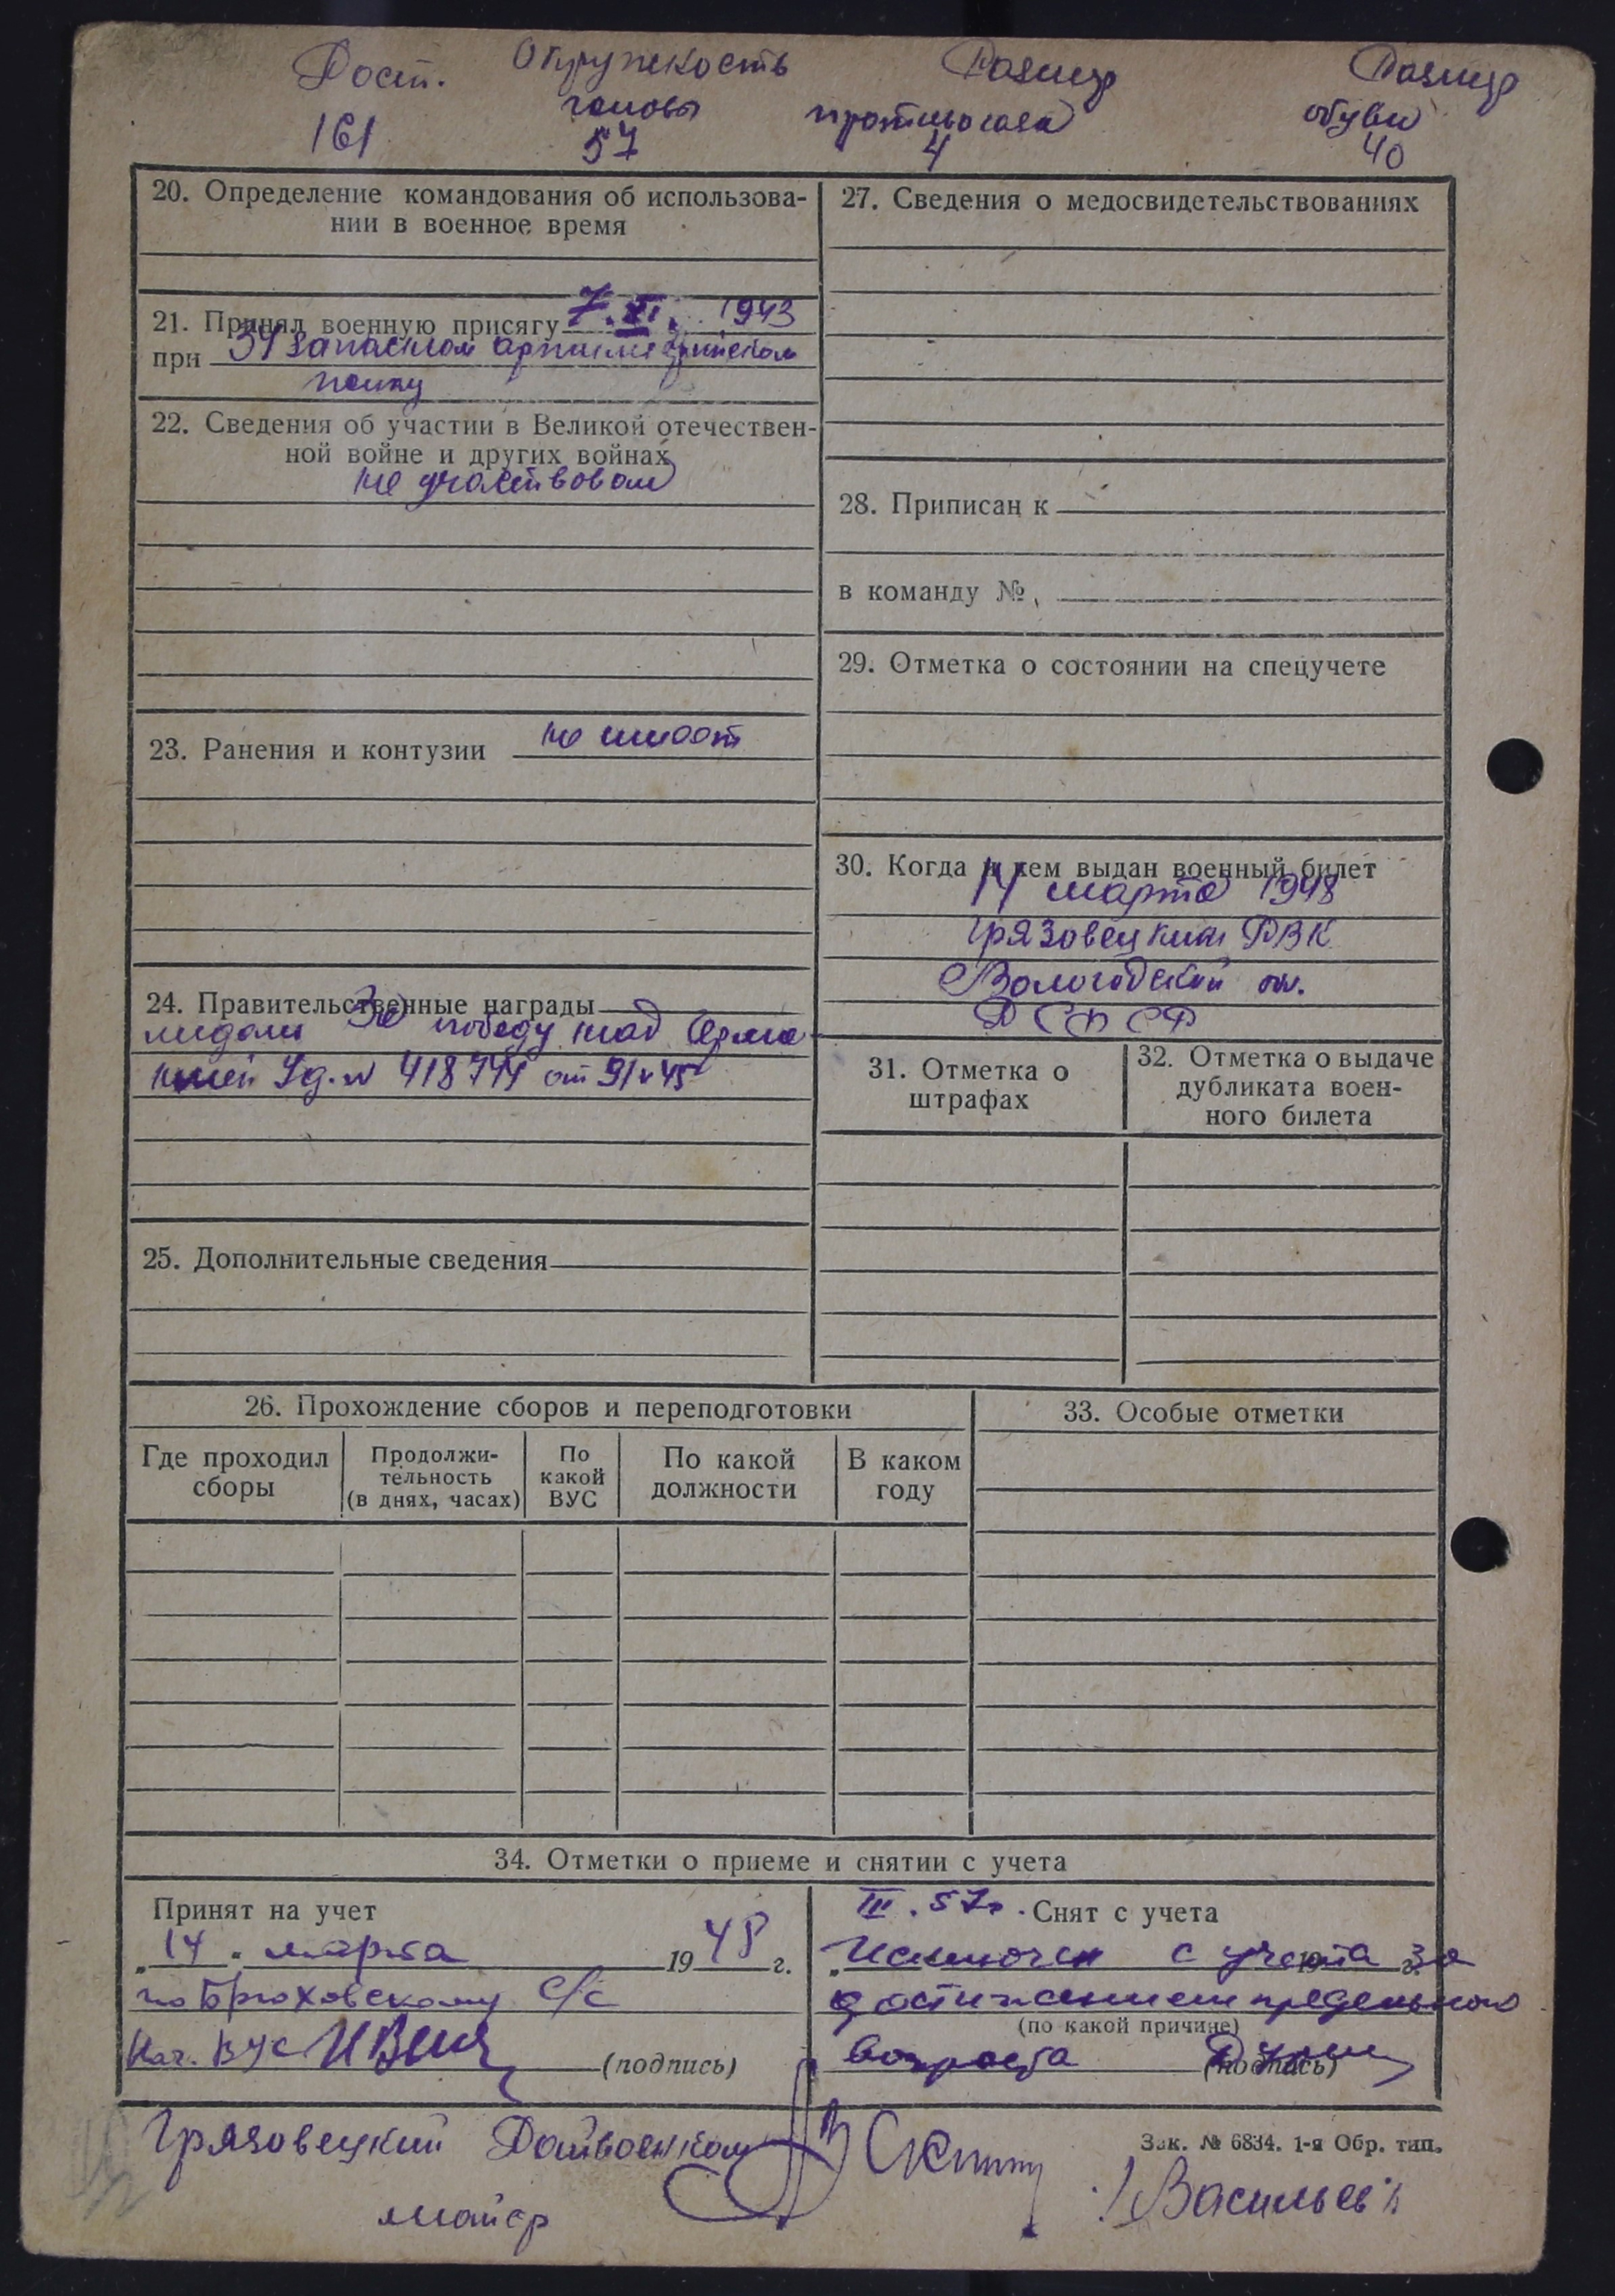 Рост. Окружность Размер Размер
головы противогаза обуви
161 57 4 40
20. Определение командования об использова-
нии в военное время
21. Принял военную присягу 7. XI. 1943
при 34 запасном артиллерийском
полку
22. Сведения об участии в Великой отечествен-
ной войне и других войнах
не участвовал
23. Ранения и контузии не имеет
24. Правительственные награды
медаль За победу над Герма-
нией Уд. № от 9/V 45
25. Дополнительные сведения
27. Сведения о медосвидетельствованиях
28. Приписан к
в команду №
29. Отметка о состоянии на спецучете
30. Когда и кем выдан военный билет
14 марта 1948
Грязовецким РВК
Вологодской обл.
РСФСР
31. Отметка о
штрафах
32. Отметка о выдаче
дубликата воен-
ного билета
26. Прохождение сборов и переподготовки
Где проходил
сборы
Продолжи-
тельность
(в днях, часах)
По
какой
ВУС
По какой
должности
В каком
году
33. Особые отметки
34. Отметки о приеме и снятии с учета
Принят на учет
„14" марта 1948 г.
по Брюховскому С/С
Нач. ВУС (подпись)
III. 57г. Снят с учета
„ Исключен с учета за 19 г.
достижением предельного
(по какой причине)
возраста (подпись)
Грязовецкий Райвоенком
майор
Зак. № 6834. 1-я Обр. тип.
Васильев